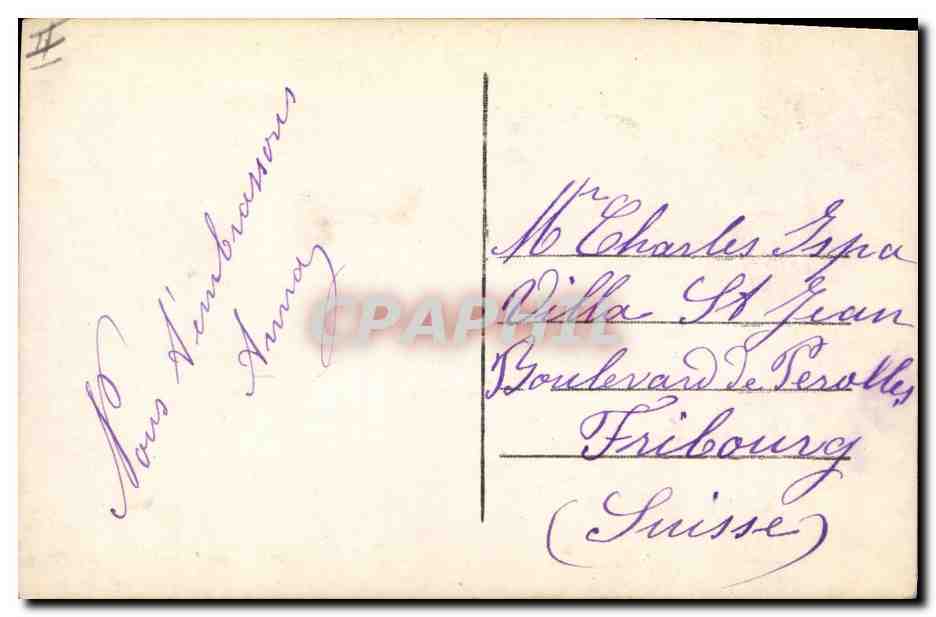 II
Nous t'embrassons
Anna
Mr Charles Ispa
Villa St Jean
Boulevard de Perolles
Fribourg
(Suisse)
CPAPHIL